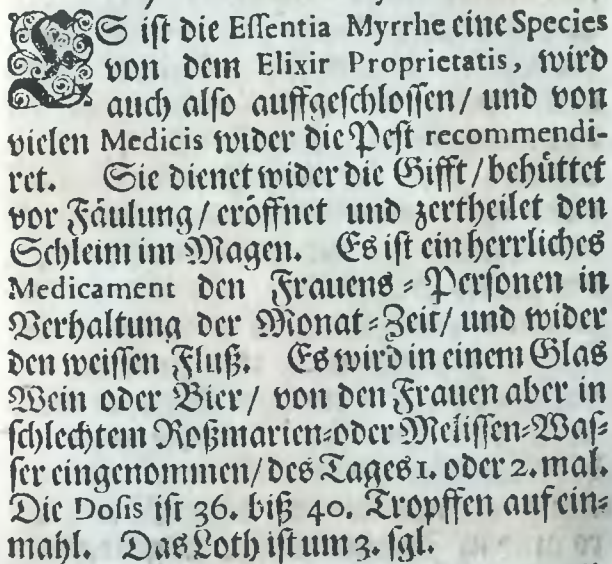 ES ist die Essentia Myrrhe eine Species
von dem Elixir Proprietatis, wird
auch also auffgeschlossen / und von
vielen Medicis wider die Pest recommendi-
ret. Sie dienet wider die Gifft / behüttet
vor Fäulung / eröffnet und zertheilet den
Schleim im Magen. Es ist ein herrliches
Medicament den Frauens-Personen in
Verhaltung der Monat-Zeit / und wider
den weissen Fluß. Es wird in einem Glas
Wein oder Bier / von den Frauen aber in
schlechtem Roßmarien-oder Melissen-Was-
ser eingenommen / des Tages 1. oder 2. mal.
Die Dosis ist 36. biß 40. Tropffen auf ein-
mahl. Das Loth ist um 3. sgl.